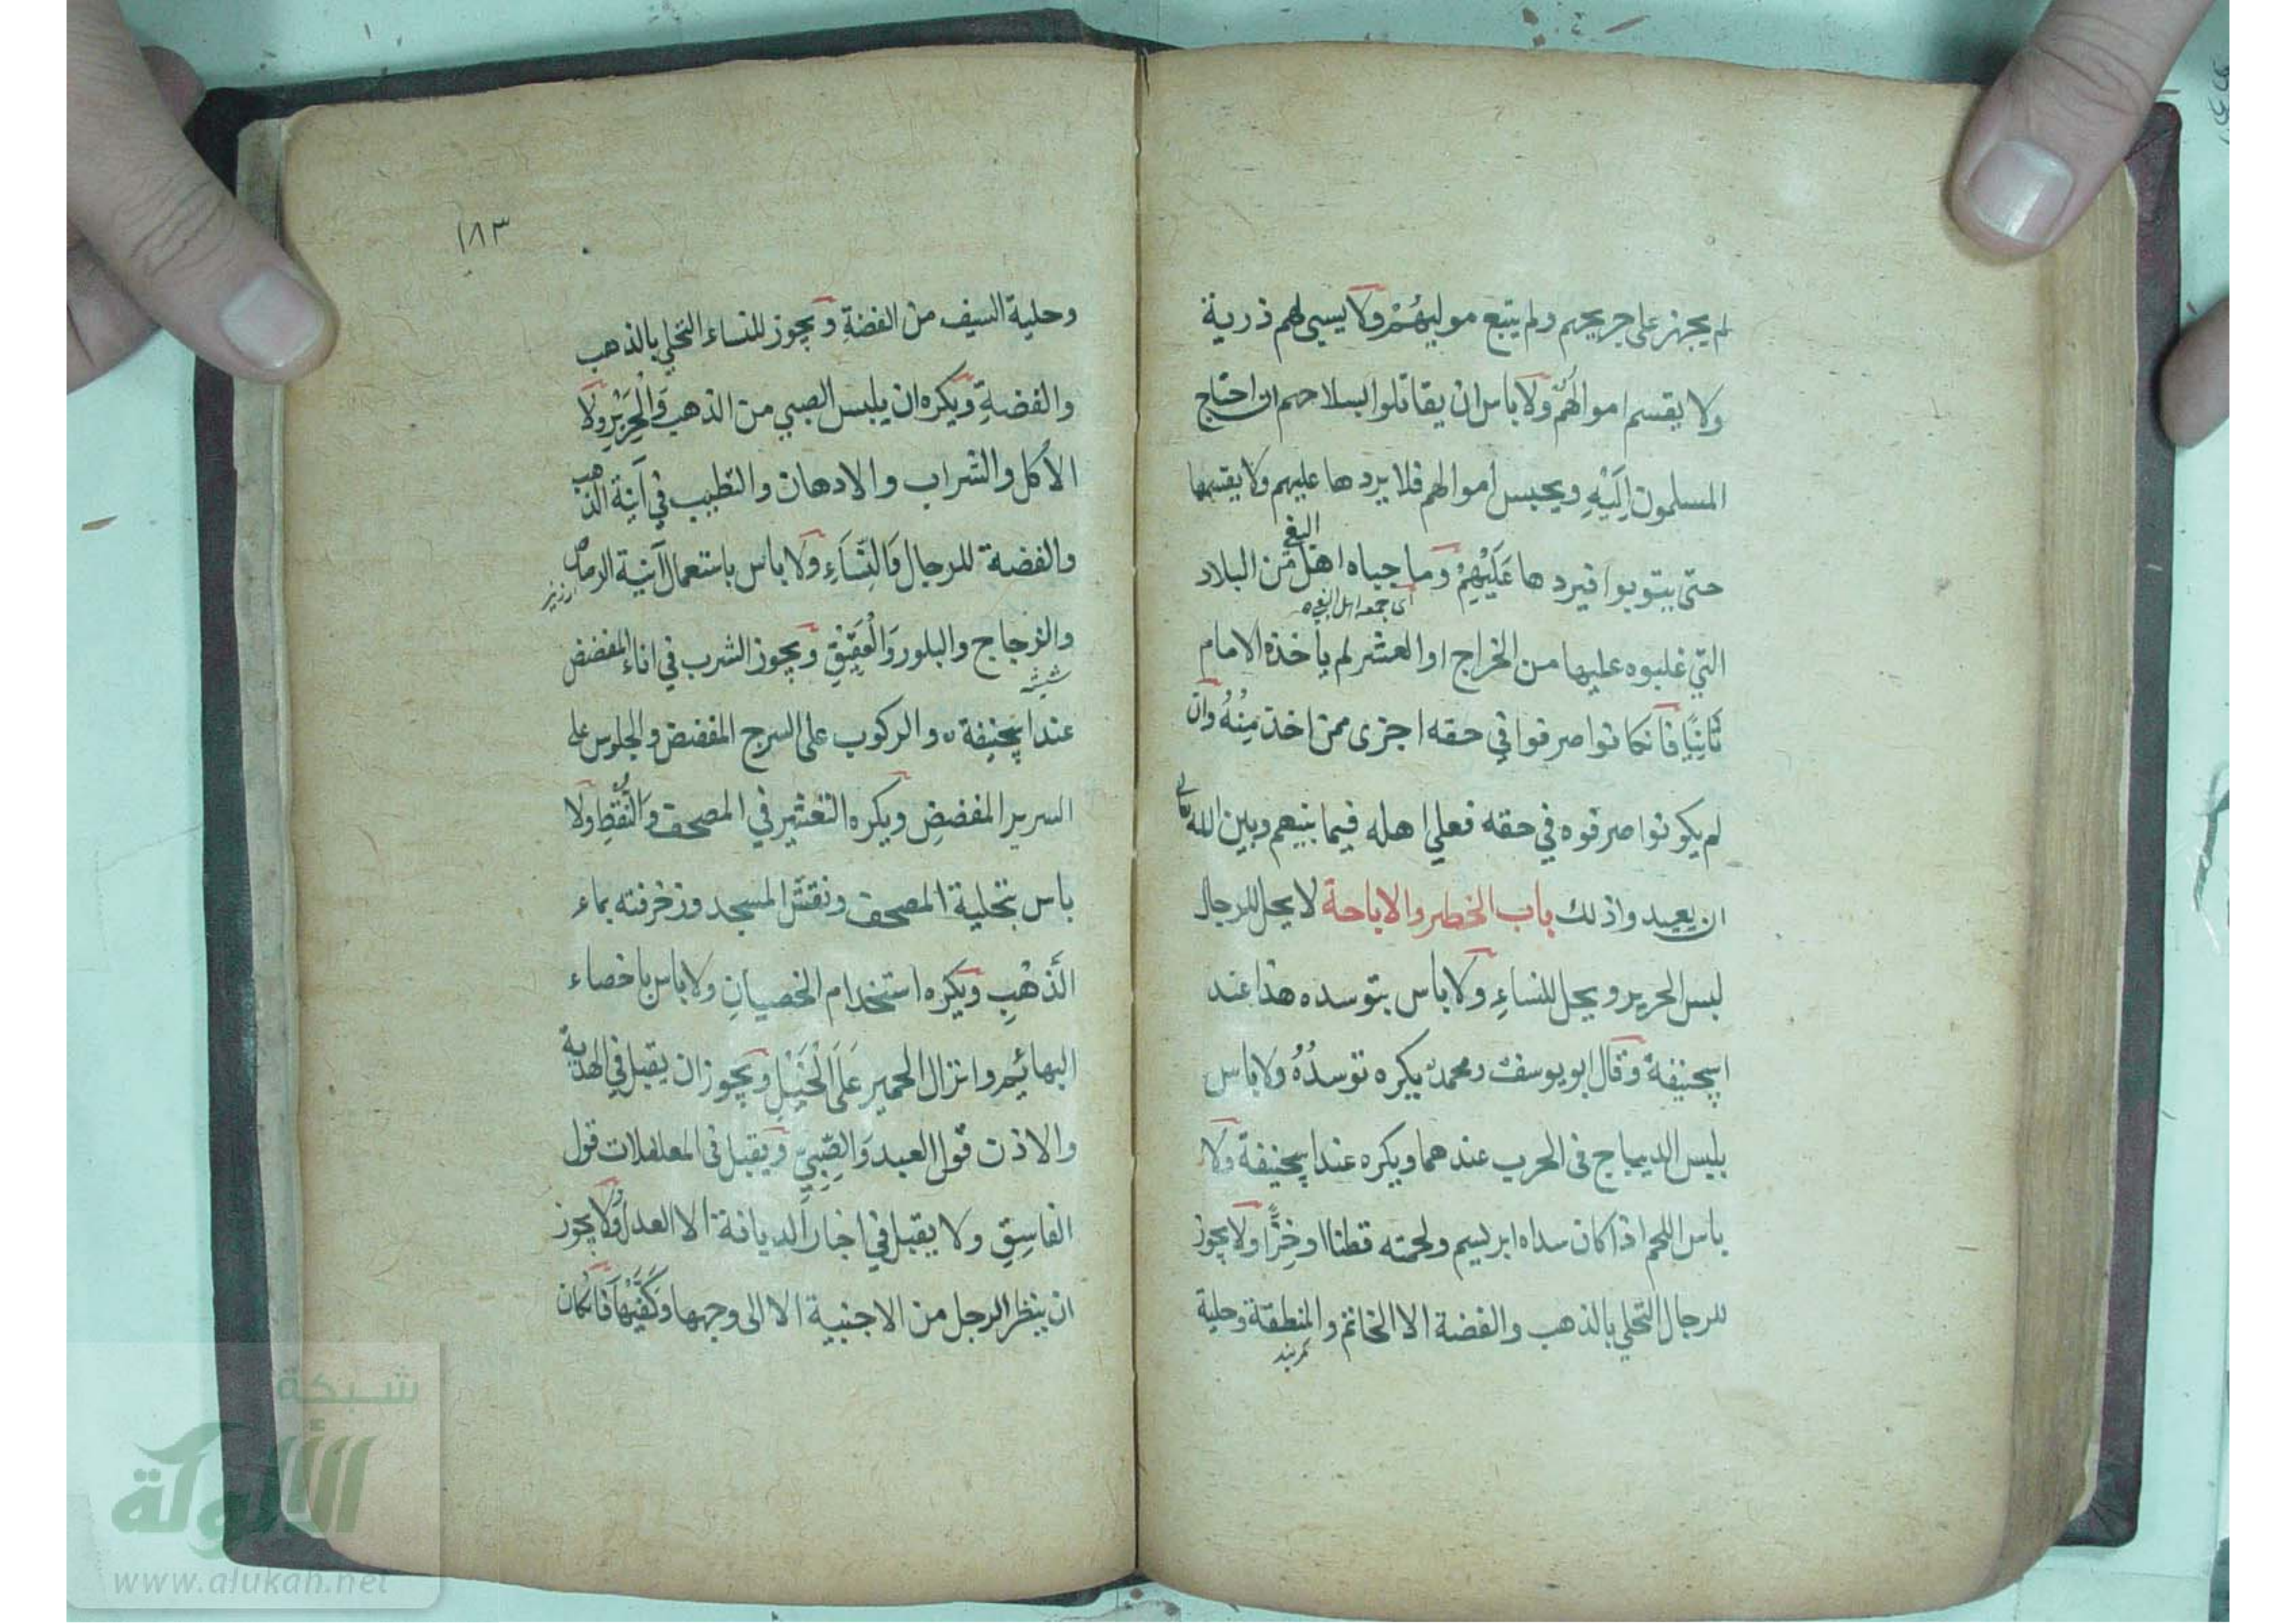 لم يجهز على جريحهم ولم يتبع موليهُمْ ولا يسبى لهم ذرية
ولا يقسم اموالهُم ولا باس ان يقاتلوا بسلاحهم ان احتاج
المسلمون اِلَيْهِ ويحبس اموالهم فلا يردها عليهم ولا يقسمها
حتى يتوبوا فيردها عَلَيْهِمْ وما جباه اهل البغي من البلاد
اى جمعه اهل البغى
التي غلبوه عليها من الخراج او العشر لم يأخذه الامام
ثَانِيًا فانكانوا صرفوا في حقه اجزى ممن اخذ مِنْهُ وان
لم يكونوا صرفوه في حقه فعلي اهله فيما بينهم وبين الله تعالى
ان يعيدوا ذلك باب الخطر والاباحة لا يحل للرجال
لبس الحرير ويحل للنساءِ ولا باس بتوسده هذا عند
ابيحنيفة وقال ابو يوسف ومحمد يكره توسدُهُ ولا باس
بلبس الديباج فى الحرب عندهما ويكره عند ابيحنيفة ولا
باس اللحم اذا كان سداه ابريسم ولحمته قطنا او خزًّا ولا يجوز
للرجال التحلي بالذهب والفضة الا الخاتم والمنطقة وحلية
كمربند
١٨٣
وحلية السيف من الفضةِ ويجوز للنساء التحلي بالذهب
والفضةِ ويكره ان يلبس الصبي من الذهب وَالْحَرِيْرِ ولا
الأكل والشراب والادهان والتطيب في آنية الذهب
والفضة للرجال وَالنِّسَاءِ ولا باس باستعمال آنية الرصاص
ارزيز
والزجاج والبلور وَالْعَقِيْقِ ويجوز الشرب في اناء المفضض
شيشه
عند ابيحنيفة والركوب على السرج المفضض والجلوس على
السرير المفضضِ ويكره التعشير في المصحف والنُّقَطِ ولا
باس بتحلية المصحف ونقش المسجد وزخرفته بماء
الذَهْبِ ويكره استخدام الخصيانِ ولا باس باخصاء
البهائم وانزال الحمير عَلَى الْخَيْلِ ويجوز ان يقبل في الهدية
والاذن قول العبد وَالصِّبِيّ ويقبل فى المعاملات قول
الفاسِقِ ولا يقبل في اخبار الديانة الا العدل ولا يجوز
ان ينظر الرجل من الاجنبية الا الى وجهها وَكَفَّيْهَا فانكان
شبكة
الألوكة
www.alukah.net